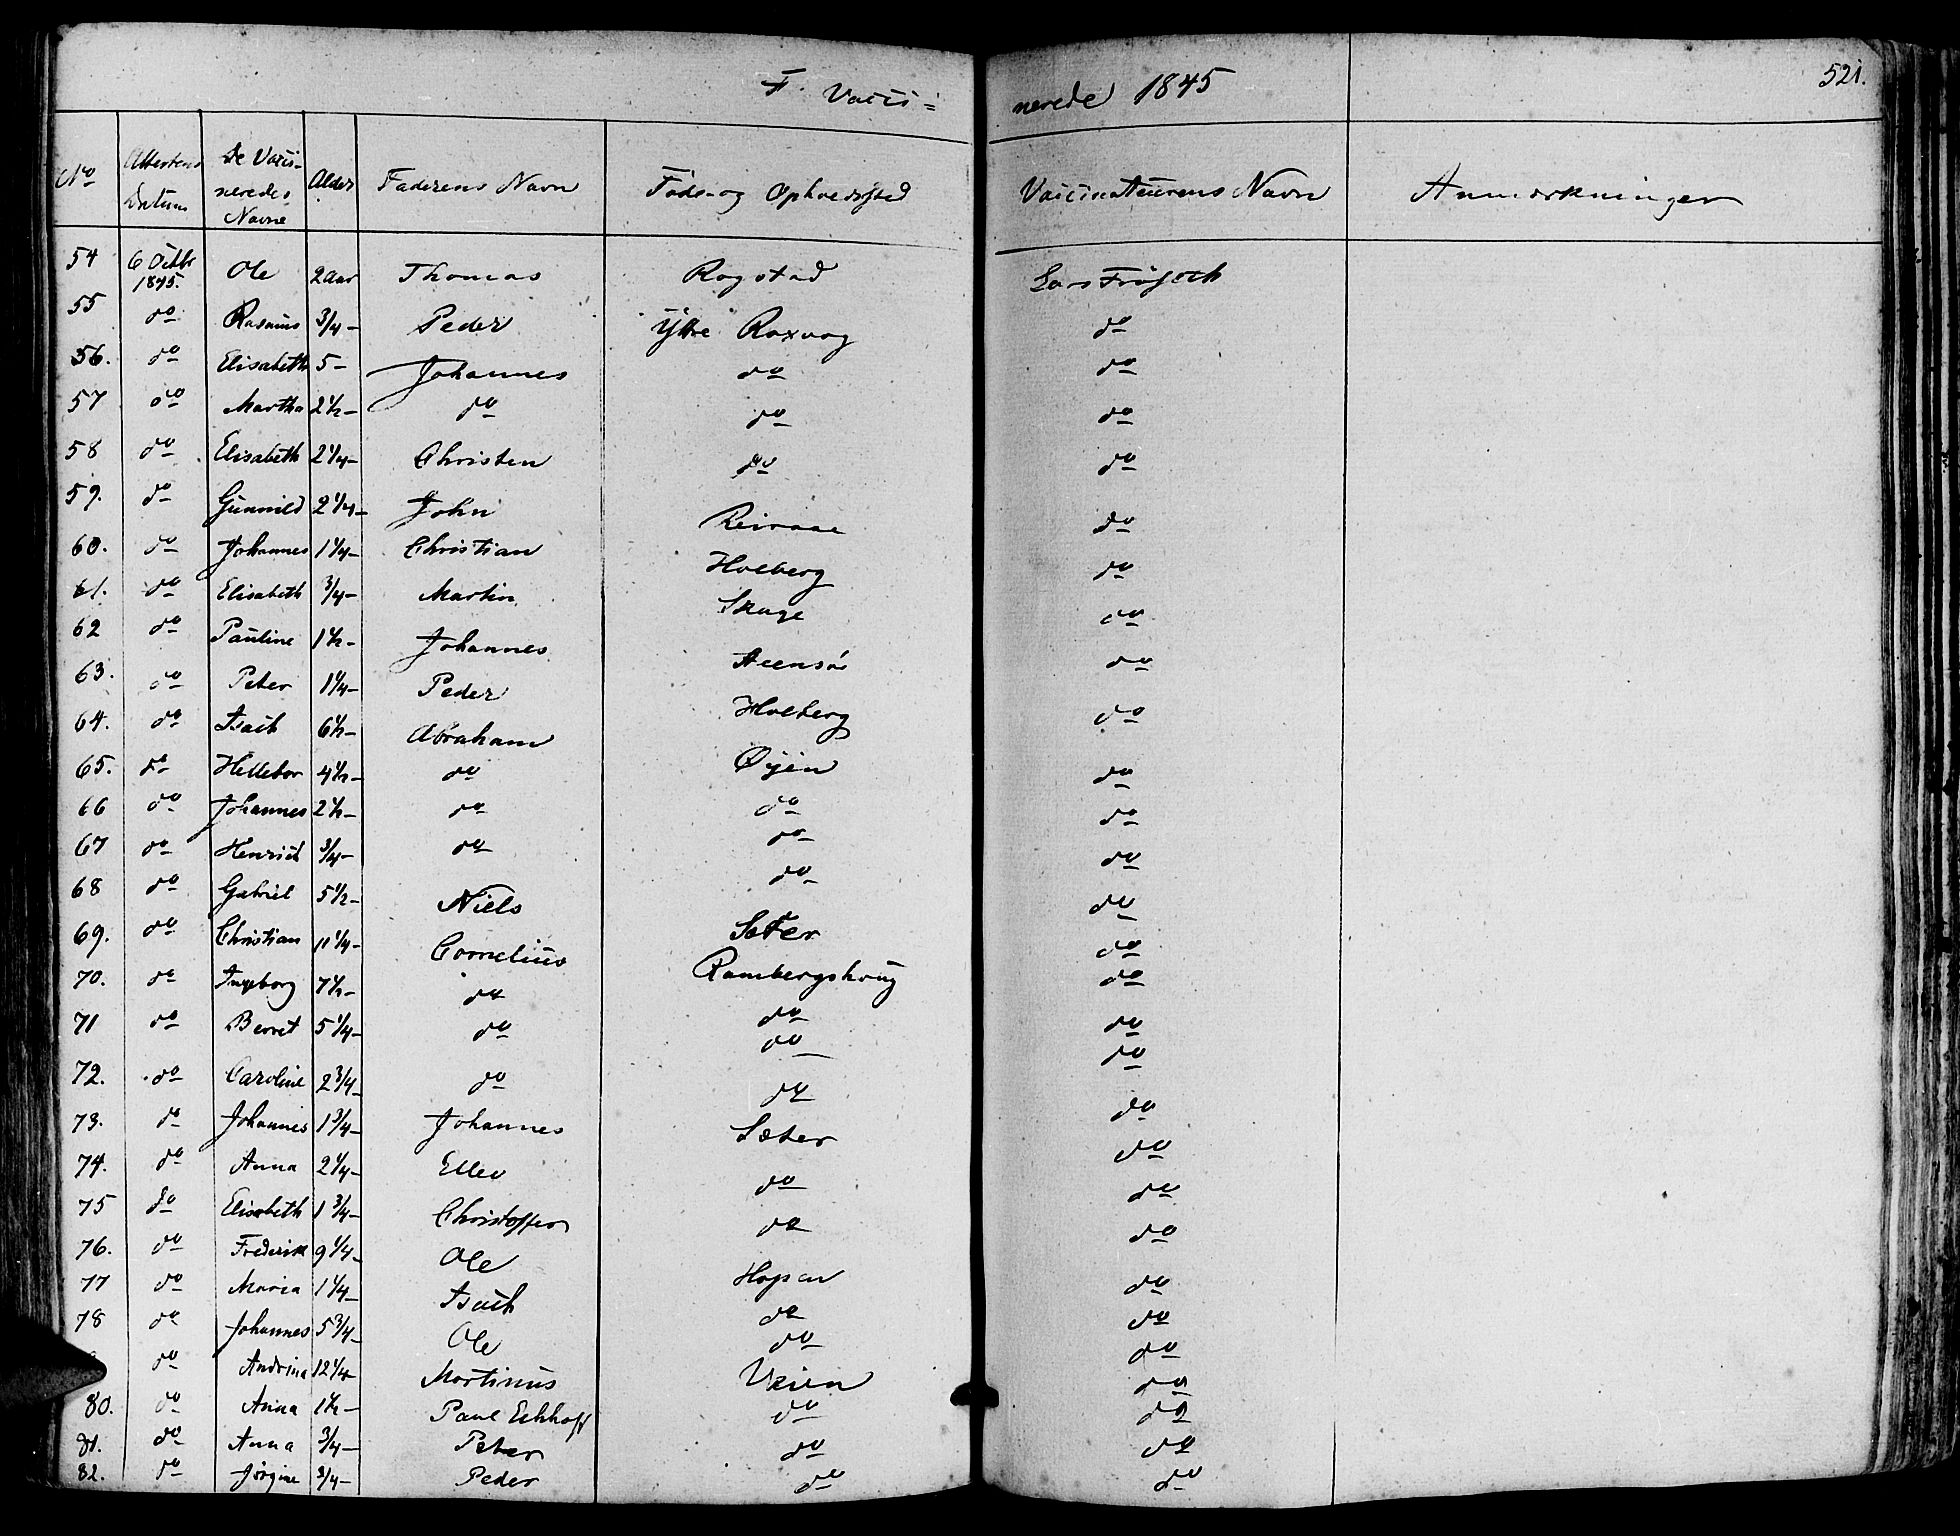 F. Vacci=
nerede 1845
521.
No | Attestens Datum | De Vacci-neredes Navne | Alder | Faderens Navn | Føde-og Ophvedssted | Vaccinateurens Navn | Anmærkninger
54 | 6 Octbr 1845. | Ole | 2 Aar | Thomas | Rogstad | Lars Frøseth
55 | do | Rasmus | 3/4 - | Peder | Yttre Roxvog | do
56. | do | Elisabeth | 5 - | Johannes | do | do
57 | do | Martha | 2 1/2 - | do | do | do
58 | do | Elisabeth | 2 1/4 - | Christen | do | do
59. | do | Gunnild | 2 1/4 - | John | Reiraae | do
60. | do | Johannes | 1 1/4 - | Christian | Holberg | do
61. | do | Elisabeth | 3/4 - | Martin | Skage | do
62 | do | Pauline | 1 1/2 - | Johannes | Steensøe | do
63. | do | Peter | 1 1/4 - | Peder | Holberg | do
64. | do | Isach | 6 1/2 - | Abraham | Øyen | do
65. | do | Hellebor | 4 1/2 - | do | do | do
66 | do | Johannes | 2 1/2 - | do | do | do
67 | do | Henrich | 3/4 - | do | do | do
68 | do | Gabriel | 5 1/2 - | Niels | Sæter | do
69. | do | Christian | 11 1/4 - | Cornelius | Rambergshoug | do
70. | do | Ingeborg | 7 1/2 - | do | do | do
71 | do | Berret | 5 1/4 - | do | do | do
72. | do | Caroline | 2 3/4 - | do | do | do
73. | do | Johannes | 1 3/4 - | Johannes | Sæter | do
74. | do | Anna | 2 1/4 - | Ellev | do | do
75 | do | Elisabeth | 1 3/4 - | Christoffer | do | do
76. | do | Frederik | 9 1/4 - | Ole | Hopen | do
77 | do | Maria | 1 1/4 - | Isach | do | do
78 | do | Johannes | 5 3/4 - | Ole | do | do
do | Andrina | 12 1/4 - | Mortinus | Veien | do
80. | do | Anna | 1 1/2 - | Paul Eckhoff | do | do
81. | do | Anna | 3/4 - | Peter | do | do
82. | do | Jørgine | 3/4 - | Peder | do | do